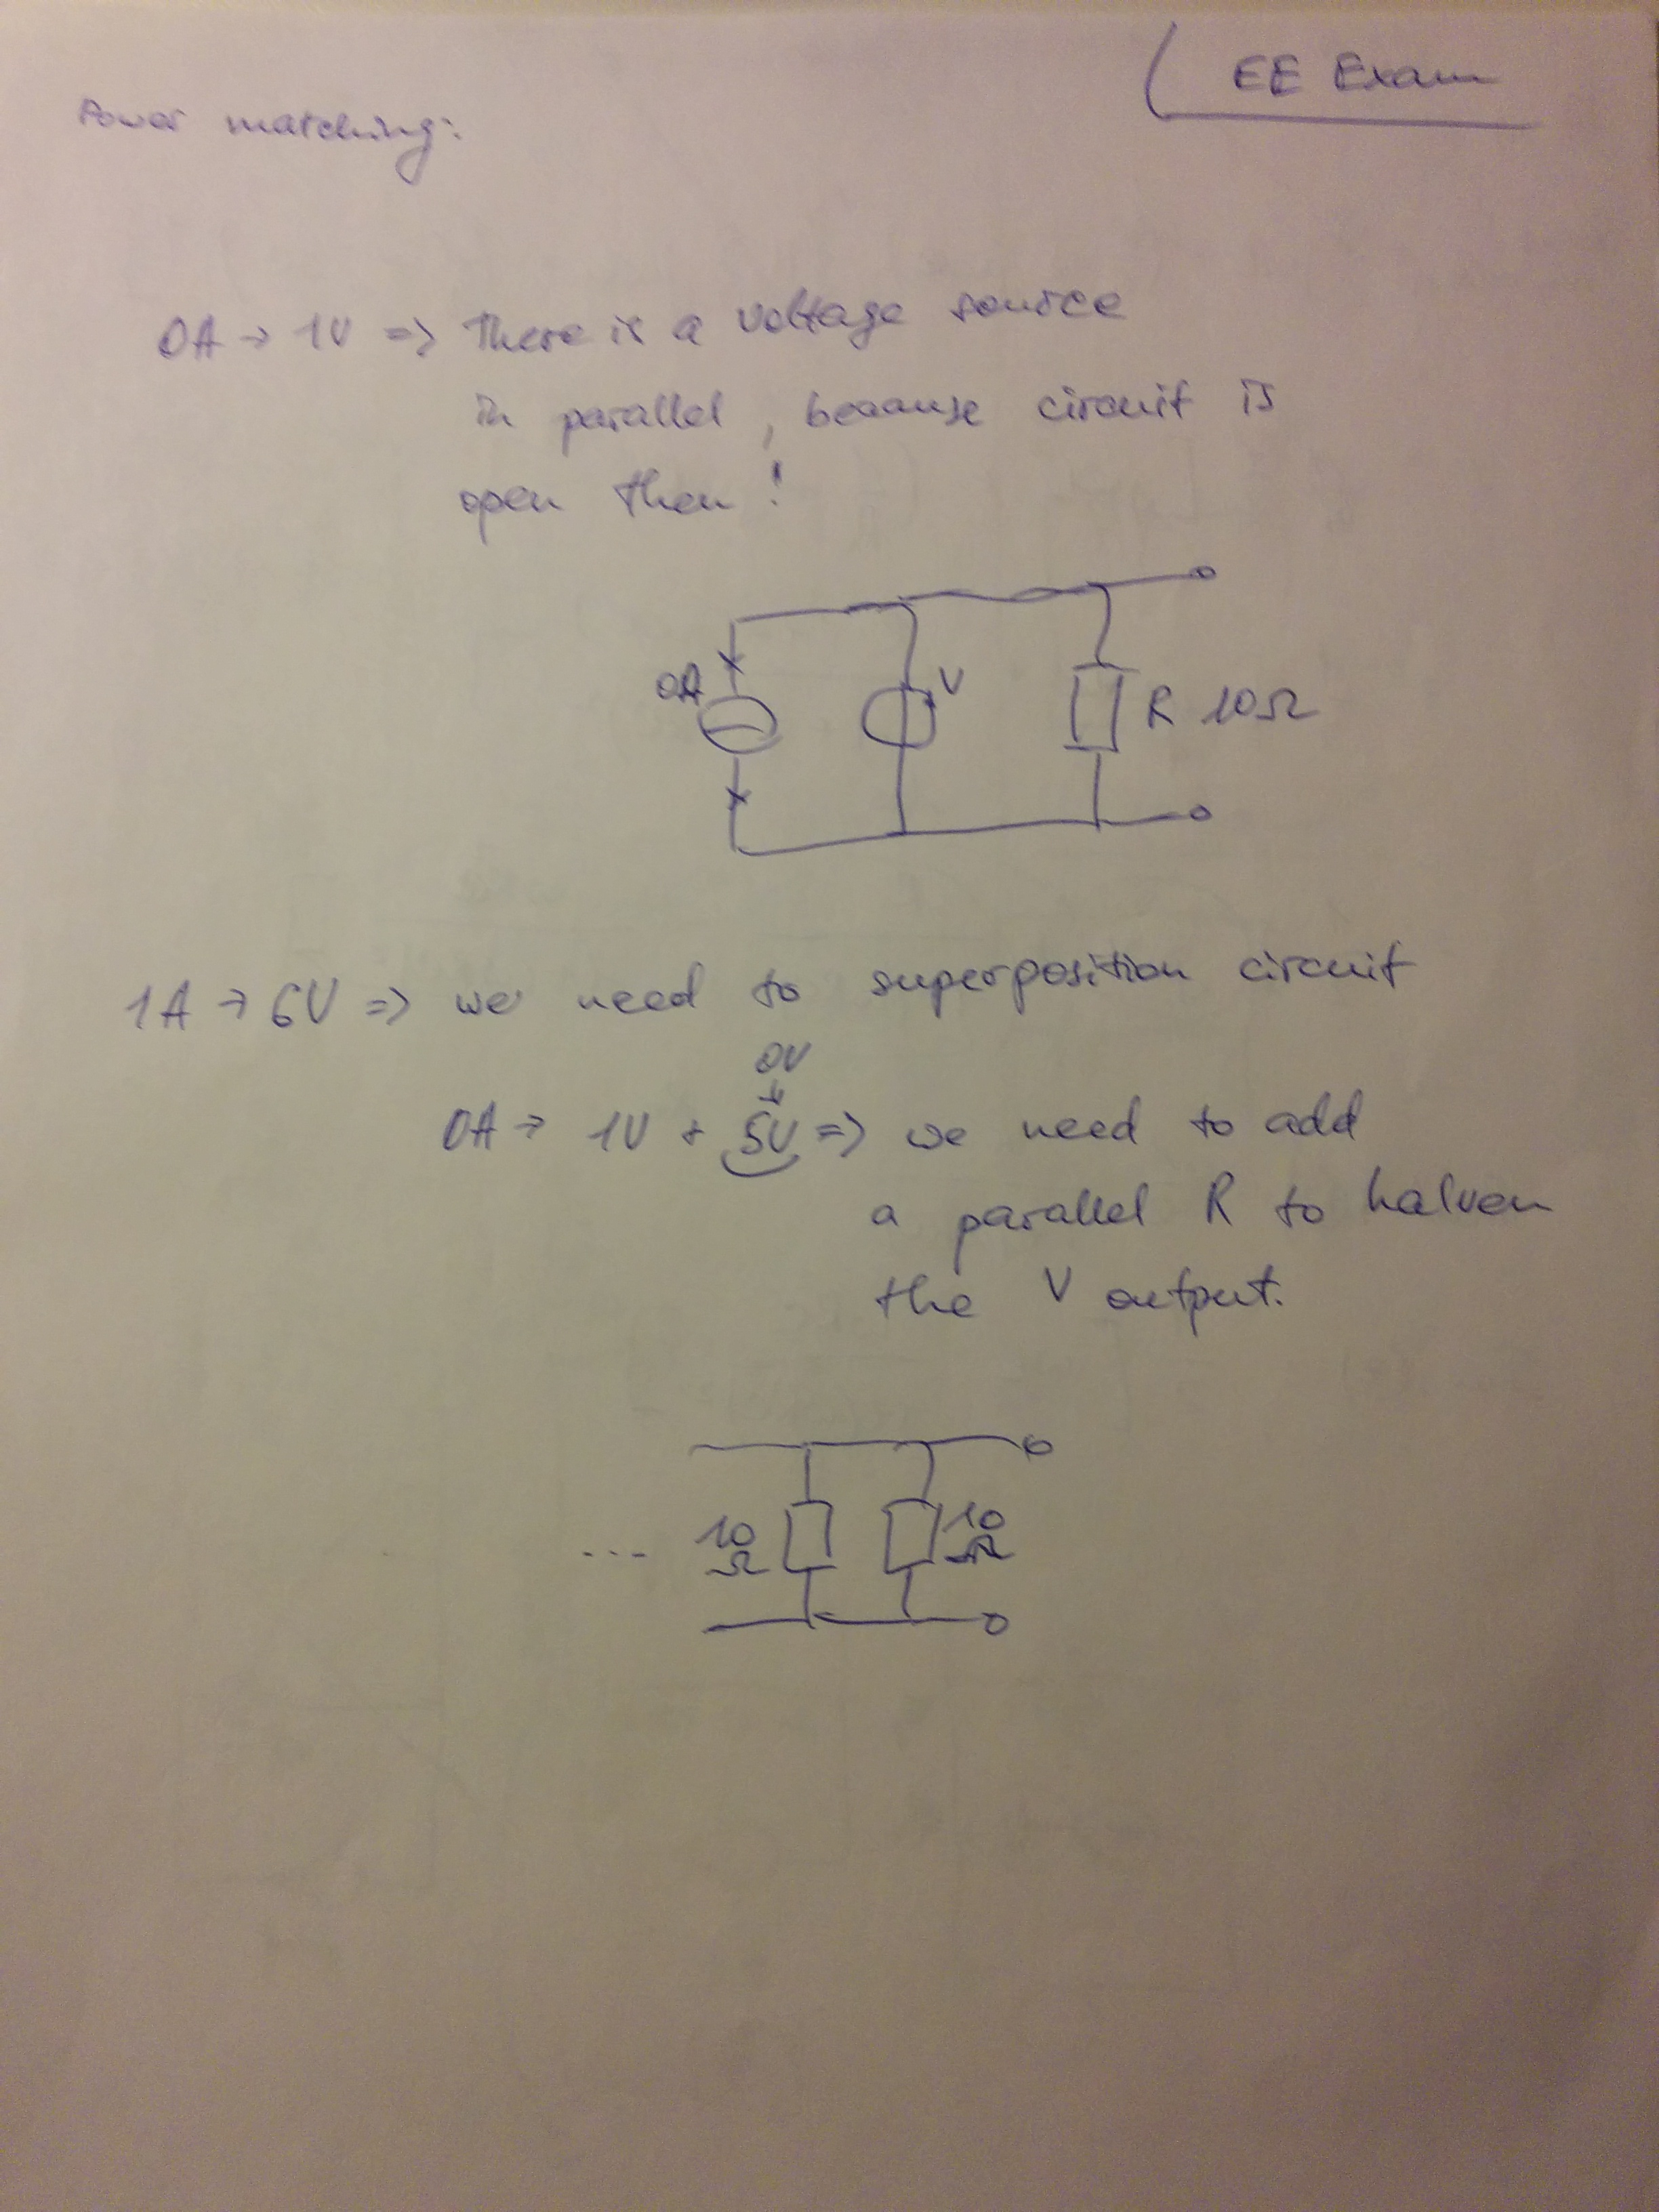 EE Exam
Power matching:
0A → 1V => There is a voltage source
in parallel, because circuit is
open then!
0A
V
R 10Ω
1A → 6V => we need to superposition circuit
0V
0A → 1V + 5V => we need to add
a parallel R to halven
the V output.
... 10 Ω 10 Ω